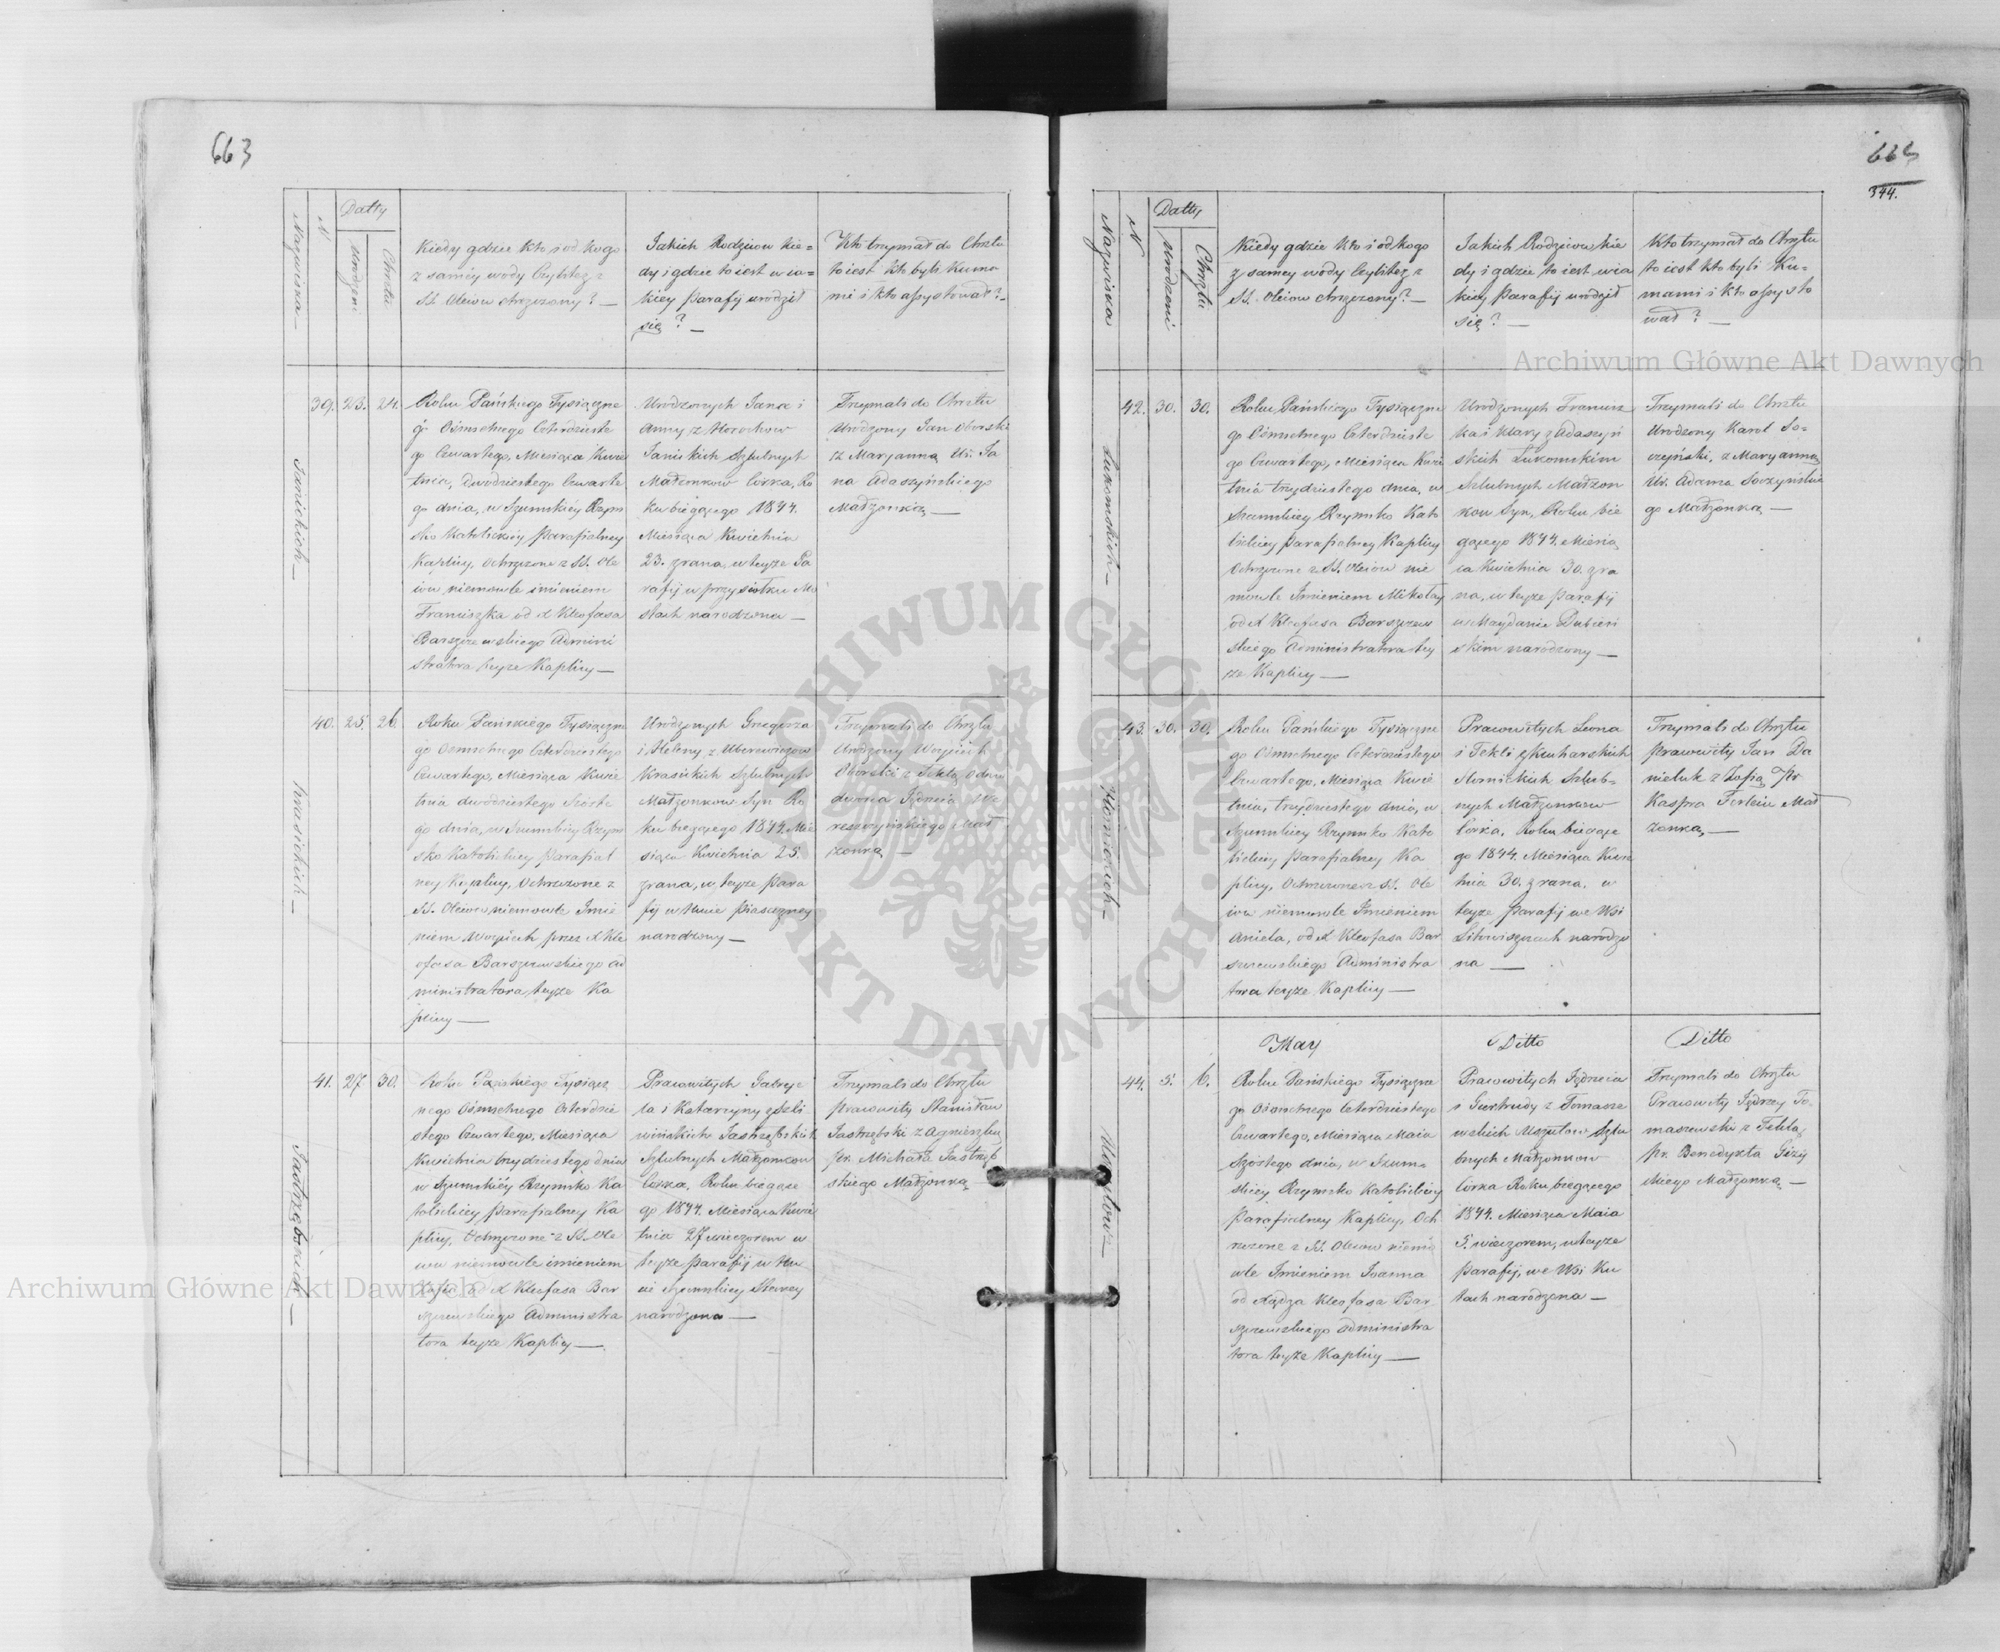 663
Nazwiska
N
Datty
Urodzen
Chrztu
Kiedy gdzie kto i od kogo
z samey wody czyli też z
SS. Oleiow chrzczony? —
Jakich Rodziców kie=
dy i gdzie to iest w ia=
kiey Parafij urodził
się? —
Kto trzymał do Chrztu
to iest kto byli Kuma
mi i kto assystował? —
39.
23.
24.
Janickich —
Roku Pańskiego Tysiączne
go Ośmsetnego Czterdzieste
go Czwartego, Miesiąca Kwie
tnia, dwudziestego Czwarte
go dnia, w Szumskiéy Rzym
sko Katolickiéy Parafialney
Kaplicy, Ochrzczone z SS. Ole
iow niemowle imieniem
Franciszka od X Kleofasa
Barszczewskiego Admini
stratora teyże Kaplicy —
Urodzonych Jana i
Anny z
Janickich Szlubnych
Małżonkow Corka, Ro
ku biegącego 1844.
Miesiąca Kwietnia
23. zrana, w teyże Pa
rafij w przysiołku Mo
stach narodzona —
Trzymali do Chrztu
Urodzony Jan Oborski
z Maryanną Ur. Ja
na Adaszyńskiego
Małżonką —
40.
25.
26
Krasickich —
Roku Pańskiego Tysiączne
go Osmsetnego Czterdziestego
Czwartego, Miesiąca Kwie
tnia dwudziestego Szoste
go dnia, w Szumskiey Rzym
sko Katolickiey Parafial
ney Kaplicy, Ochrzczone z
SS. Oleiow niemowle Imie
niem Woyciech przez X Kle
ofasa Barszczewskiego Ad
ministratora teyże Ka
plicy —
Urodzonych Grzegorza
i Heleny z
Krasickich Szlubnych
Małżonkow Syn Ro
ku biegącego 1844. Mie
siąca Kwietnia 25.
zrana, w teyże Para
fij w Hucie Piaseczney
narodzony —
Trzymali do Chrztu
Urodzony Woyciech
Oborski z Teklą
Jędrzeia
Małżonką —
41.
27
30.
Jastrzębskich —
Roku Pańskiego Tysiącz
nego Ośmsetnego Czterdzie
stego Czwartego, Miesiąca
Kwietnia trzydziestego dnia
w Szumskiéy Rzymsko Ka
tolickiey Parafialney Ka
plicy, Ochrzczone z SS. Ole
iow niemowle imieniem
Zofia od X Kleofasa Bar
szczewskiego Administra
tora teyże Kaplicy —
Pracowitych Gabrye
la i Katarzyny z
Jastrzębskich
Szlubnych Małżonkow
Corka, Roku biegące
go 1844. Miesiąca Kwie
tnia 27 wieczorem w
teyże Parafij w Hu
cie Szumskiey Starey
narodzona —
Trzymali do Chrztu
Pracowity Stanisław
Jastrzębski z Agnieszką
Pr. Michała Jastrzęb
skiego Małżonką —
344.
Nazwiska
N
Datty
Urodzeni
Chrztu
Kiedy gdzie kto i od kogo
z samey wody czyli też z
SS. Oleiow chrzczony? —
Jakich Rodziców kie
dy i gdzie to iest w ia
kiey Parafij urodził
się? —
Kto trzymał do Chrztu
to iest kto byli Ku=
mami i kto assysto
wał? —
42.
30.
30.
Łukomskich —
Roku Pańskiego Tysiączne
go Ośmsetnego Czterdzieste
go Czwartego, Miesiąca Kwie
tnia trzydziestego dnia, w
Szumskiey Rzymsko Kato
lickiey Parafialney Kaplicy
Ochrzczone z SS. Oleiow nie
mowle Imieniem Mikołay
od X Kleofasa Barszczew
skiego Administratora tey
że Kaplicy —
Urodzonych Francisz
ka i Klary z Adaszyń
skich Łukomskim
Szlubnych Małżon
kow Syn, Roku bie
gącego 1844. Miesią
ca Kwietnia 30. zra
na, w teyże Parafij
w Maydanie Dubien
skim narodzony —
Trzymali do Chrztu
Urodzony Karol So=
czyński, z Maryanną
Ur. Adama Soczyńskie
go Małżonką —
43.
30.
30.
Słonickich —
Roku Pańskiego Tysiączne
go Ośmsetnego Czterdziestego
Czwartego, Miesiąca Kwie
tnia, trzydziestego dnia, w
Szumskiey Rzymsko Kato
lickiey Parafialney Ka
plicy, Ochrzczone z SS. Ole
iow niemowle Imieniem
Aniela, od X Kleofasa Bar
szczewskiego Administra
tora teyże Kaplicy —
Pracowitych Leona
i Tekli z Kucharskich
Słonickich Szlub=
nych Małżonkow
Corka, Roku biegące
go 1844. Miesiąca Kwie
tnia 30. zrana, w
teyże Parafij we Wsi
narodzo
na —
Trzymali do Chrztu
Pracowity Jan Da
nieluk z Zofią Pr
Kaspra Małżonką —
May
Ditto
Ditto
44.
5.
6.
Roku Pańskiego Tysiączne
go Ośmsetnego Czterdziestego
Czwartego, Miesiąca Maia
Szostego dnia, w Szum=
skiey Rzymsko Katolickiey
Parafialney Kaplicy, Och
rzczone z SS. Oleiow niemo
wle Imieniem Joanna
od Xiądza Kleofasa Bar
szczewskiego Administra
tora teyże Kaplicy —
Pracowitych Jędrzeia
i Gertrudy z Tomasze
wskich Szlu
bnych Małżonkow
Corka Roku biegącego
1844. Miesiąca Maia
5. wieczorem, w teyże
Parafij, we Wsi Ku
tach narodzona —
Trzymali do Chrztu
Pracowity Jędrzey To=
maszewski z Teklą
Pr. Benedykta Giży
ckiego Małżonką —
Archiwum Główne Akt Dawnych
Archiwum Główne Akt Dawnych
ARCHIWUM GŁÓWNE
AKT DAWNYCH